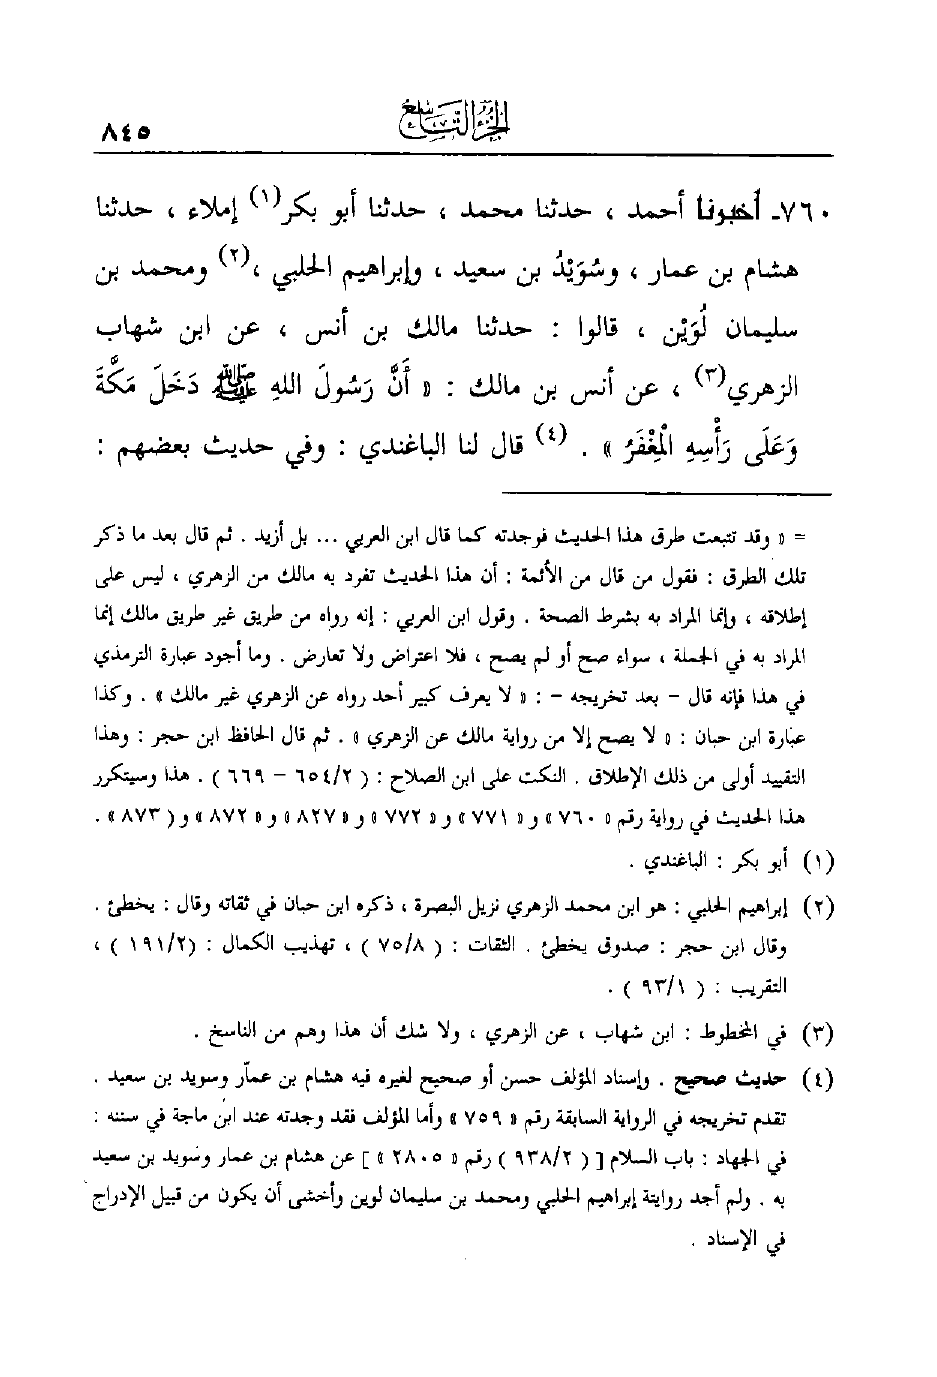 الجزء التاسع
٨٤٥
٧٦٠- أخبرنا أحمد ، حدثنا محمد ، حدثنا أبو بكر(١) إملاء ، حدثنا
هشام بن عمار ، وسُوَيْدُ بن سعيد ، وإبراهيم الحلبي ،(٢) ومحمد بن
سليمان لُوَيْن ، قالوا : حدثنا مالك بن أنس ، عن ابن شهاب
الزهري(٣) ، عن أنس بن مالك : « أَنَّ رَسُولَ اللهِ ﷺ دَخَلَ مَكَّةَ
وَعَلَى رَأْسِهِ الْمِغْفَرُ » . (٤) قال لنا الباغندي : وفي حديث بعضهم :
= « وقد تتبعت طرق هذا الحديث فوجدته كما قال ابن العربي ... بل أزيد . ثم قال بعد ما ذكر
تلك الطرق : فقول من قال من الأئمة : أن هذا الحديث تفرد به مالك من الزهري ، ليس على
إطلاقه ، وإنما المراد به بشرط الصحة . وقول ابن العربي : إنه رواه من طريق غير طريق مالك إنما
المراد به في الجملة ، سواء صح أو لم يصح ، فلا اعتراض ولا تعارض . وما أجود عبارة الترمذي
في هذا فإنه قال - بعد تخريجه - : « لا يعرف كبير أحد رواه عن الزهري غير مالك » . وكذا
عبارة ابن حبان : « لا يصح إلا من رواية مالك عن الزهري » . ثم قال الحافظ ابن حجر : وهذا
التقييد أولى من ذلك الإطلاق . النكت على ابن الصلاح : ( ٢/ ٦٥٤ - ٦٦٩ ) . هذا وسيتكرر
هذا الحديث في رواية رقم « ٧٦٠ » و « ٧٧١ » و « ٧٧٢ » و « ٨٢٧ » و « ٨٧٢ » و( ٨٧٣ » .
(١) أبو بكر : الباغندي .
(٢) إبراهيم الحلبي : هو ابن محمد الزهري نزيل البصرة ، ذكره ابن حبان في ثقاته وقال : يخطئ .
وقال ابن حجر : صدوق يخطئ . الثقات : ( ٨/ ٧٥ ) ، تهذيب الكمال : (٢/ ١٩١ ) ،
التقريب : ( ١/ ٩٣ ) .
(٣) في المخطوط : ابن شهاب ، عن الزهري ، ولا شك أن هذا وهم من الناسخ .
(٤) حديث صحيح . وإسناد المؤلف حسن أو صحيح لغيره فيه هشام بن عمّار وسويد بن سعيد .
تقدم تخريجه في الرواية السابقة رقم « ٧٥٩ » وأما المؤلف فقد وجدته عند ابن ماجة في سننه :
في الجهاد : باب السلام [ ( ٢/ ٩٣٨ ) رقم « ٢٨٠٥ » ] عن هشام بن عمار وسويد بن سعيد
به . ولم أجد روايتة إبراهيم الحلبي ومحمد بن سليمان لوين وأخشى أن يكون من قبيل الإدراج
في الإسناد .